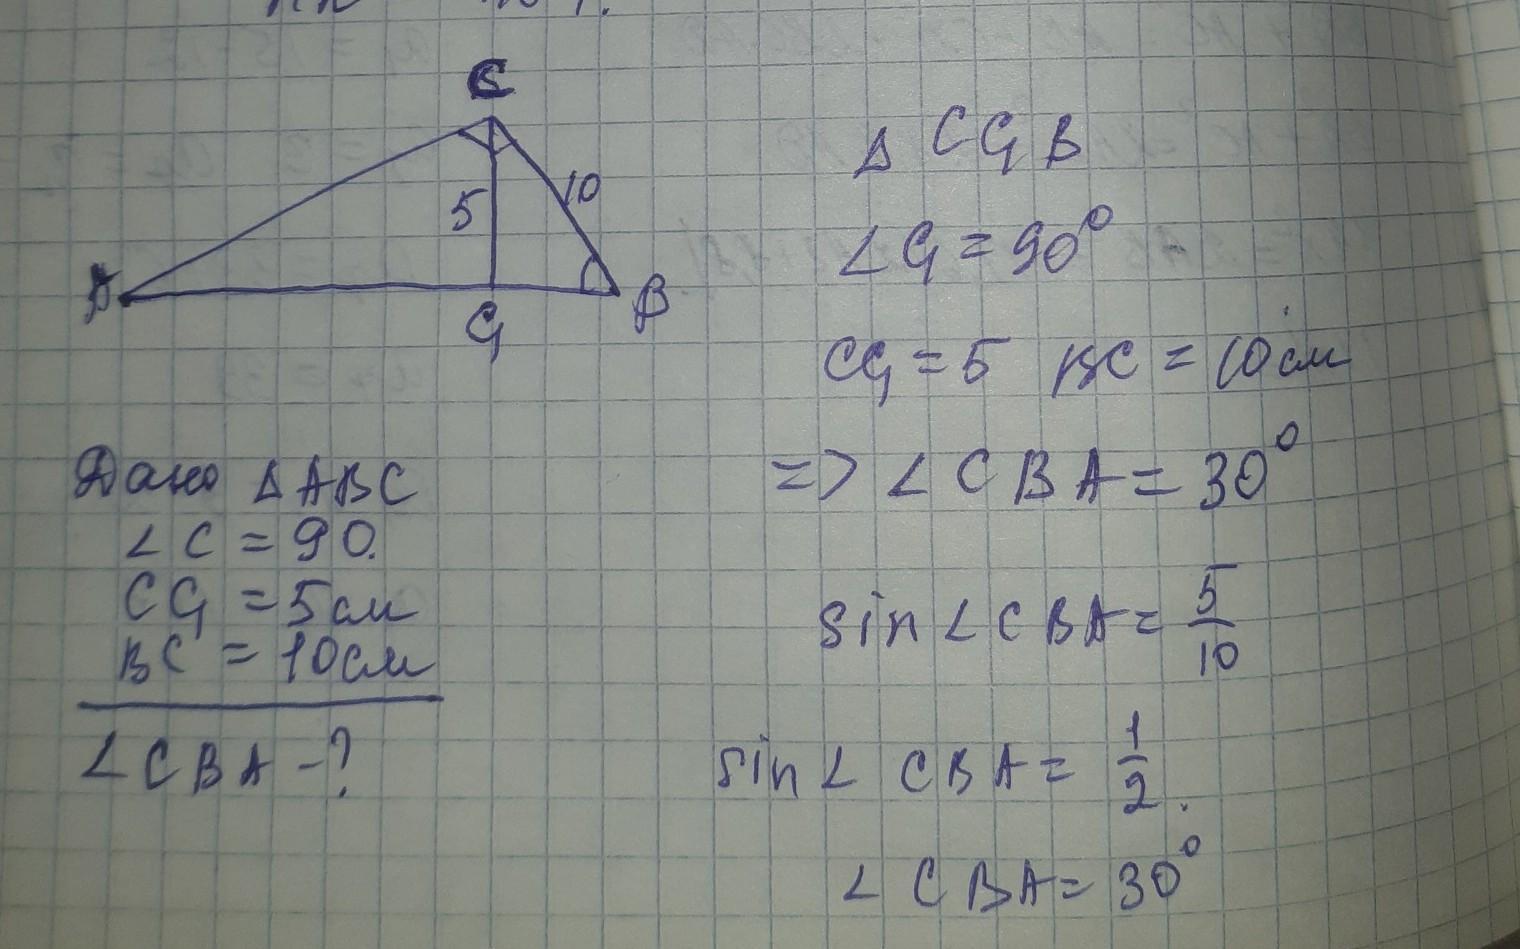 C
5
10
A
G
B
Дано Δ ABC
∠ C = 90.
CG = 5 см
BC = 10 см
∠ CBA - ?
Δ CGB
∠ G = 90°
CG = 5 BC = 10 см
=> ∠ CBA = 30°
sin ∠ CBA = 5/10
sin ∠ CBA = 1/2.
∠ CBA = 30°